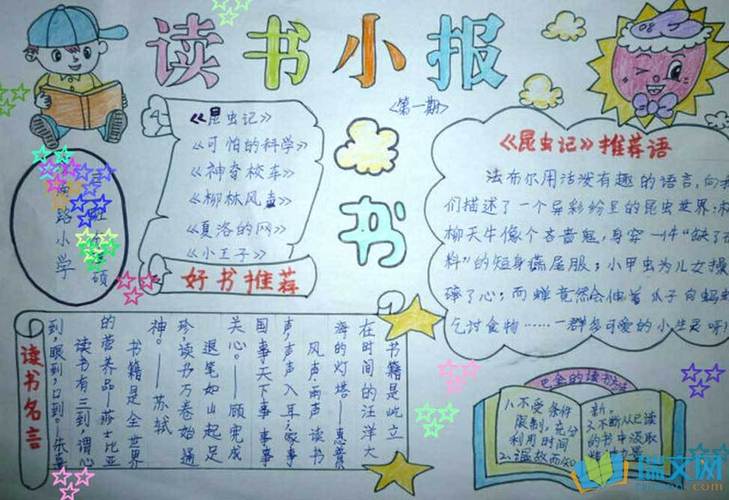 读书小报
<第一期>
《昆虫记》
《可怕的科学》
《神奇校车》
《柳林风声》
《夏洛的网》
《小王子》
好书推荐
书
路小学
硕
《昆虫记》推荐语
法布尔用活泼有趣的语言,向我
们描述了一个异彩纷呈的昆虫世界:
柳天牛像个吝啬鬼,身穿一件“缺了布
料”的短身燕尾服;小甲虫为儿女操
碎了心;而蝉竟然会伸着爪子向蚂蚁
乞讨食物……一群多可爱的小生灵呀!
读书名言
书籍是此立
在时间的汪洋大
海的灯塔——惠普
风声,雨声,读书
声,声声入耳;家事
国事天下事事事
关心。——顾宪成
退笔如山起足
珍,读书万卷始通
神。——苏轼
书籍是全世界
的营养品——莎士比亚
读书有三到:谓心
到,眼到,口到。——朱熹
巴金的读书方法
1、不受条件
限制,充分
利用时间
2、温故而知
新。
3、不断从已读
的书中汲取
瑞文网